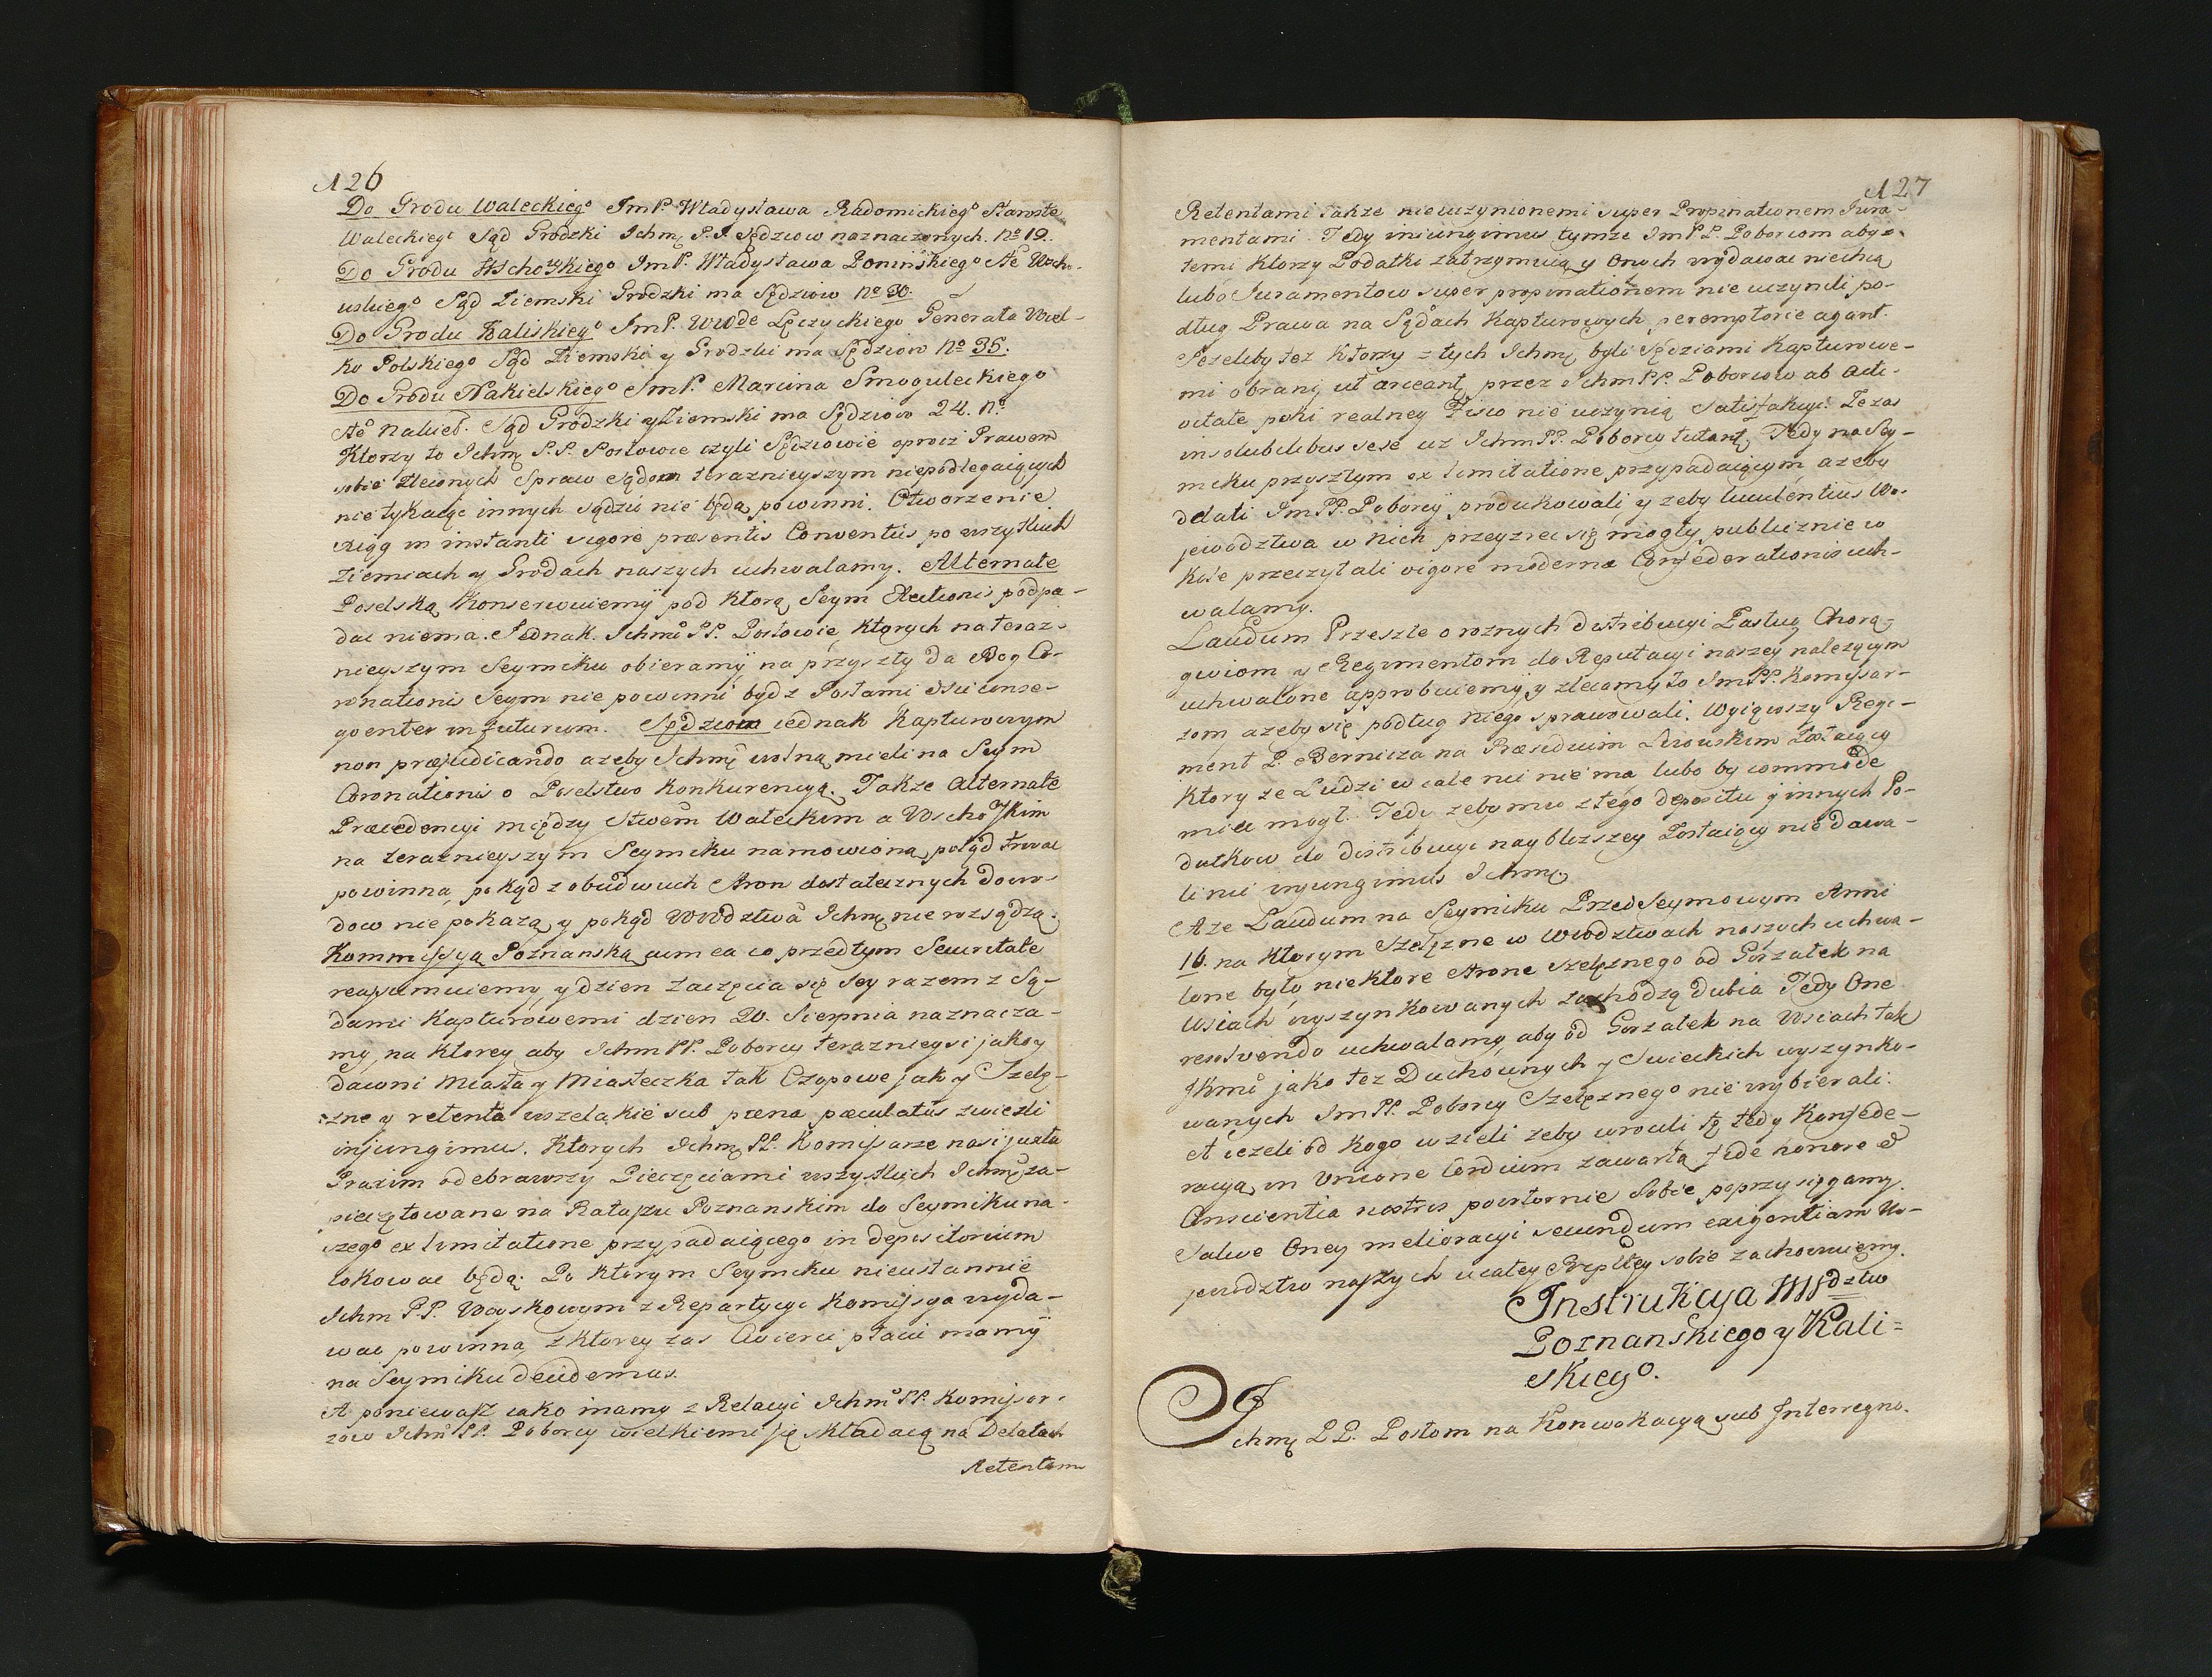 126
Do Grodu Waleckiego ImP. Władysława Radomickiego Staroste
Waleckiego Sąd Grodzki Ichmę P.P. Sędziow naznaczonych. No 19.
Do Grodu Wschowskiego ImP. Władysława Poninskiego Ste Wscho-
wskiego Sąd Ziemski Grodzki ma Sędziow No 30.
Do Grodu Kaliskiego ImP. WWde Lęczyckiego Generała Wiel-
ko Polskiego Sąd Ziemski y Grodzki ma Sędziow No 35.
Do Grodu Nakielskiego ImP. Marcina Smoguleckiego
Ste Nakiel. Sąd Grodzki y Ziemski ma Sędziow 24. No
Ktorzy to Ichmę P.P. Posłowie czyli Sędziowie oprocz Prawem
sobie zleconych Spraw Sądom teraznieyszym niepodlegaiących
nie tykaiąc innych sądzić nie będą powinni. Otworzenie
Xiąg in instanti vigore præsentis Conventus po wszystkich
Ziemiach y Grodach naszych uchwalamy. Alternate
Poselską Konserwuiemy pod ktorą Seym Electionis podpa-
dac niema. Jednak Ichmo PP. Posłowie, ktorych na teraz-
nieyszym Seymiku obieramy na przyszły da Bog Co-
ronationis Seym nie powinni bydz Posłami Nec conse-
quenter in futurum. Sędziom iednak Kapturowym
non præjudicando azeby Ichmę wolną mieli na Seym
Coronationis o Poselstwo Konkurencyą. Takze Alternate
Præcedencyi między Stwem Wałeckim a Wschowskim
na teraznieyszym Seymiku namowioną, potąd trwac
powinna, pokąd z obudwuch stron dostatecznych dowo-
dow nie pokazą y pokąd WWdztwa Ichmę nie rozsądzą.
Kommissyą Poznanską cum ea co przedtym Securitate
reassumuiemy, y dzien zaczęcia się Iey razem z Są-
dami Kapturowemi dzien 20. Sierpnia naznacza-
my, na ktorey aby Ichm PP. Poborcy teraznieysi jako y
dawni Miasta y Miasteczka tak Czopowe jak y Szelę-
zne y retenta wszelakie sub pœna peculatûs zwiezli
injungimus. Ktorych Ichmę PP. Komissarze nasi juxta
Praxim odebrawszy Pieczęciami wszystkich Ichmę za-
pieczętowane na Ratuszu Poznanskim do Seymiku na-
szego ex limitatione przypadaiącego in depositorium
lokowac będą. Po ktorym Seymiku nieustannie
Ichm PP. Woyskowym z Repartycyi Komissya wyda-
wac powinna, z ktorey zas Cwierci płacic mamy
na Seymiku decidemus.
A poniewasz iako mamy z Relacyi Ichmo PP. Komissar-
zow Ichm PP. Poborcy wielkiemi się składaią na Delatach
Retentam
127
Retentami takze nieuczynionemi super Propinationem Jura-
mentami. Tedy iniungimus tymze ImPP. Poborcom aby z
temi ktorzy Podatki zatrzymuią y Onych wydawac niechcą
lubo Juramentow super propinationem nie uczynili po-
dług Prawa na Sądach Kapturowych peremptorie agant.
Jezeliby tez Ktorzy z tych Ichmę byli Sędziami Kapturowe-
mi obrani, ut arceant przez Ichm PP. Poborcow ab Acti-
vitate poki realney Fisco nie uczynią Satisfakcyi. Ze zas
insolubilibus sese uz Ichm PP. Poborcy tutant, Tedy na Sey-
miku przyszłym ex limitatione przypadaiącym azeby
delati ImPP. Poborcy produkowali y zeby luculentius Wo-
jewodztwa w Nich przeyzrec się mogły, publicznie w
Kole przeczytali vigore modernæ Confederationis uch-
walamy.
Laudum Przeszłe o roznych distribucyi Zasług Chorą-
gwiom y Regimentom do Reputacyi naszey nalezącym
uchwalone approbuiemy, y zlecamy to ImPP. Komissar-
zom azeby się podług niego sprawowali. Wyiąwszy Regi-
ment P. Bernicza na Præsidium Lwowskim Zostaiący
ktory ze Ludzi wcale nic nie ma lubo by commode
miec mogł. Tedy zeby mu z tego depositu y innych Po-
datkow do distribucyi nayblizszey Zostaiący nie dawa-
li nic injungimus Ichmę
A ze Laudum na Seymiku PrzedSeymowym Anni
16. na ktorym Szelęzne w Wwodztwach naszych uchwa-
lone było, niektore strone szelęznego od Gorzałek na
Wsiach wyszynkowanych zachodzą dubia Tedy One
resolvendo uchwalamy, aby od Gorzałek na Wsiach tak
JKmci jako tez Duchownych y Swieckich wyszynko-
wanych ImPP. Poborcy Szelęznego nie wybierali.
et iezeli od kogo wzieli zeby wrocili tę tedy Konfede-
racyą in Unione Cordium zawartą fide honore &
Conscientia nostris powtornie Sobie poprzysięgamy.
Salve Oney melioracyi secundum exigentiam Wo-
jewodztw naszych y całey Rzpltey sobie zachowuiemy.
Instrukcya WWdztw
Poznanskiego y Kali=
skiego.
Ichmę PP. Posłom na Konwokacyą sub Interregno.